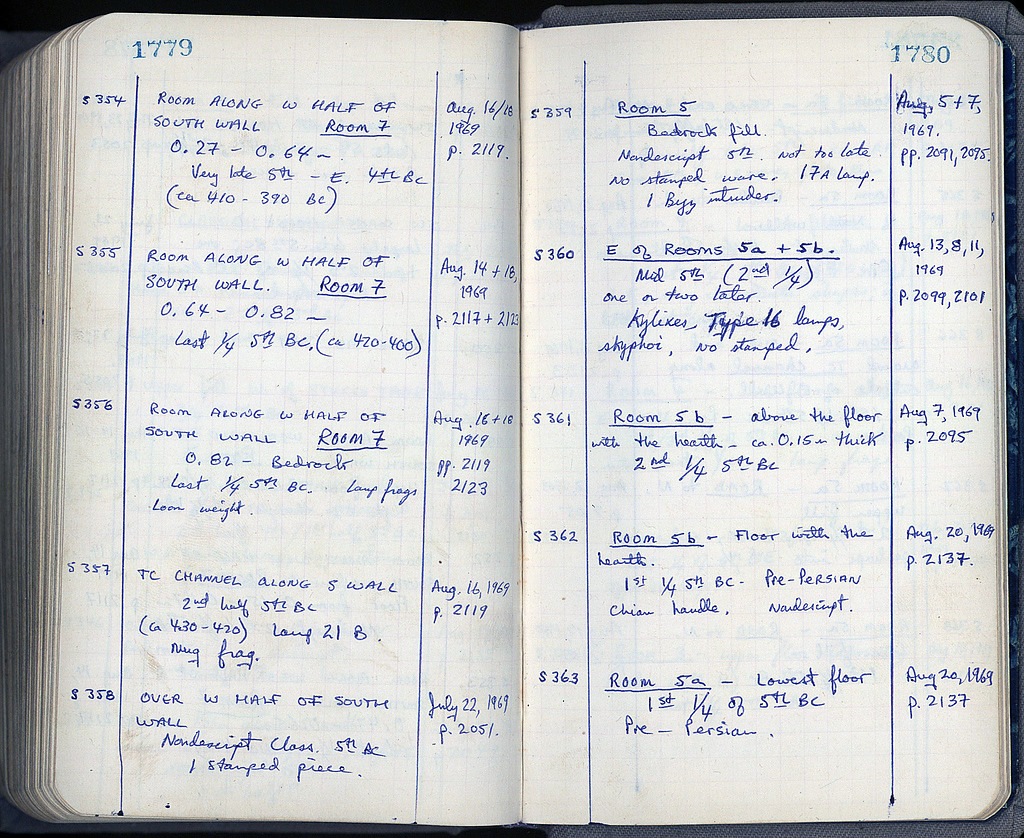 1779
S 354 ROOM ALONG W HALF OF Aug. 16/18
SOUTH WALL ROOM 7 1969
0.27 – 0.64 m p. 2119.
Very late 5th – E. 4th BC
(ca 410 - 390 BC)
S 355 ROOM ALONG W HALF OF Aug. 14 + 18,
SOUTH WALL. ROOM 7 1969
0.64 – 0.82 m p. 2117 + 2123
Last 1/4 5th BC. (ca 420-400)
S 356 ROOM ALONG W HALF OF Aug. 16 + 18
SOUTH WALL ROOM 7 1969
0.82 – Bedrock pp. 2119
Last 1/4 5th BC. lamp frags 2123
Loom weight.
S 357 TC CHANNEL ALONG S WALL Aug. 16, 1969
2nd half 5th BC p. 2119
(ca 430-420) Lamp 21 B.
Mug frag.
S 358 OVER W HALF OF SOUTH July 22, 1969
WALL p. 2051.
Nondescript Class. 5th BC
1 stamped piece.
1780
S 359 ROOM 5 Aug. 5 + 7,
Bedrock fill. 1969.
Nondescript 5th. Not too late. pp. 2091, 2095.
No stamped ware. 17A Lamp.
1 Byz intruder.
S 360 E of ROOMS 5a + 5b. Aug. 13, 8, 11,
Mid 5th (2nd 1/4) 1969
one or two later. p. 2099, 2101
Kylixes, Type 16 lamps,
skyphoi, No stamped.
S 361 Room 5b – above the floor Aug 7, 1969
with the hearth – ca. 0.15 m thick p. 2095
2nd 1/4 5th BC
S 362 Room 5b – Floor with the Aug. 20, 1969
hearth. p. 2137.
1st 1/4 5th BC - PRE-PERSIAN
Chian handle. Nondescript.
S 363 Room 5a – Lowest floor Aug 20, 1969
1st 1/4 of 5th BC p. 2137
Pre – Persian.